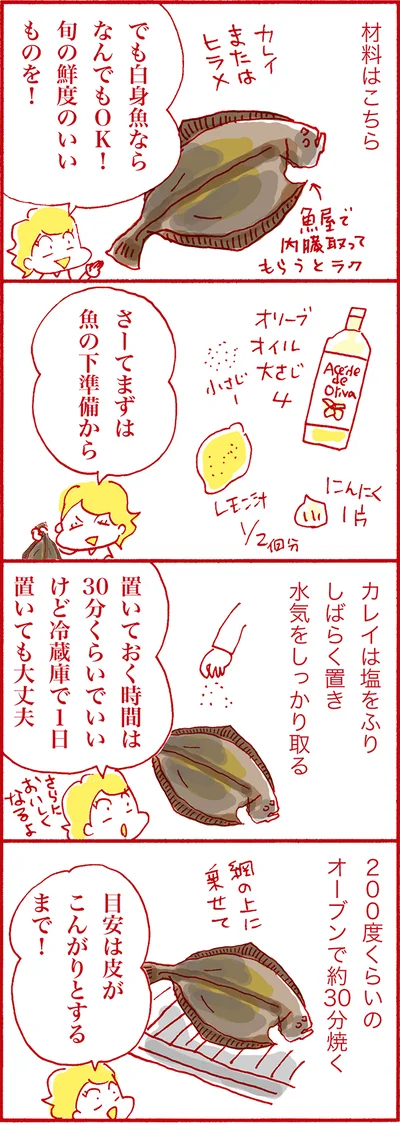 材料はこちら
カレイ
または
ヒラメ
魚屋で
内臓取って
もらうとラク
でも白身魚なら
なんでもOK！
旬の鮮度のいい
ものを！
Aceite
de
Oliva
オリーブ
オイル
大さじ
4
小さじ
1
レモン汁
1/2個分
にんにく
1片
さーてまずは
魚の下準備から
カレイは塩をふり
しばらく置き
水気をしっかり取る
置いておく時間は
30分くらいでいい
けど冷蔵庫で1日
置いても大丈夫
さらに
おいしく
なるよ
200度くらいの
オーブンで約30分焼く
網の上に
乗せて
目安は皮が
こんがりとする
まで！